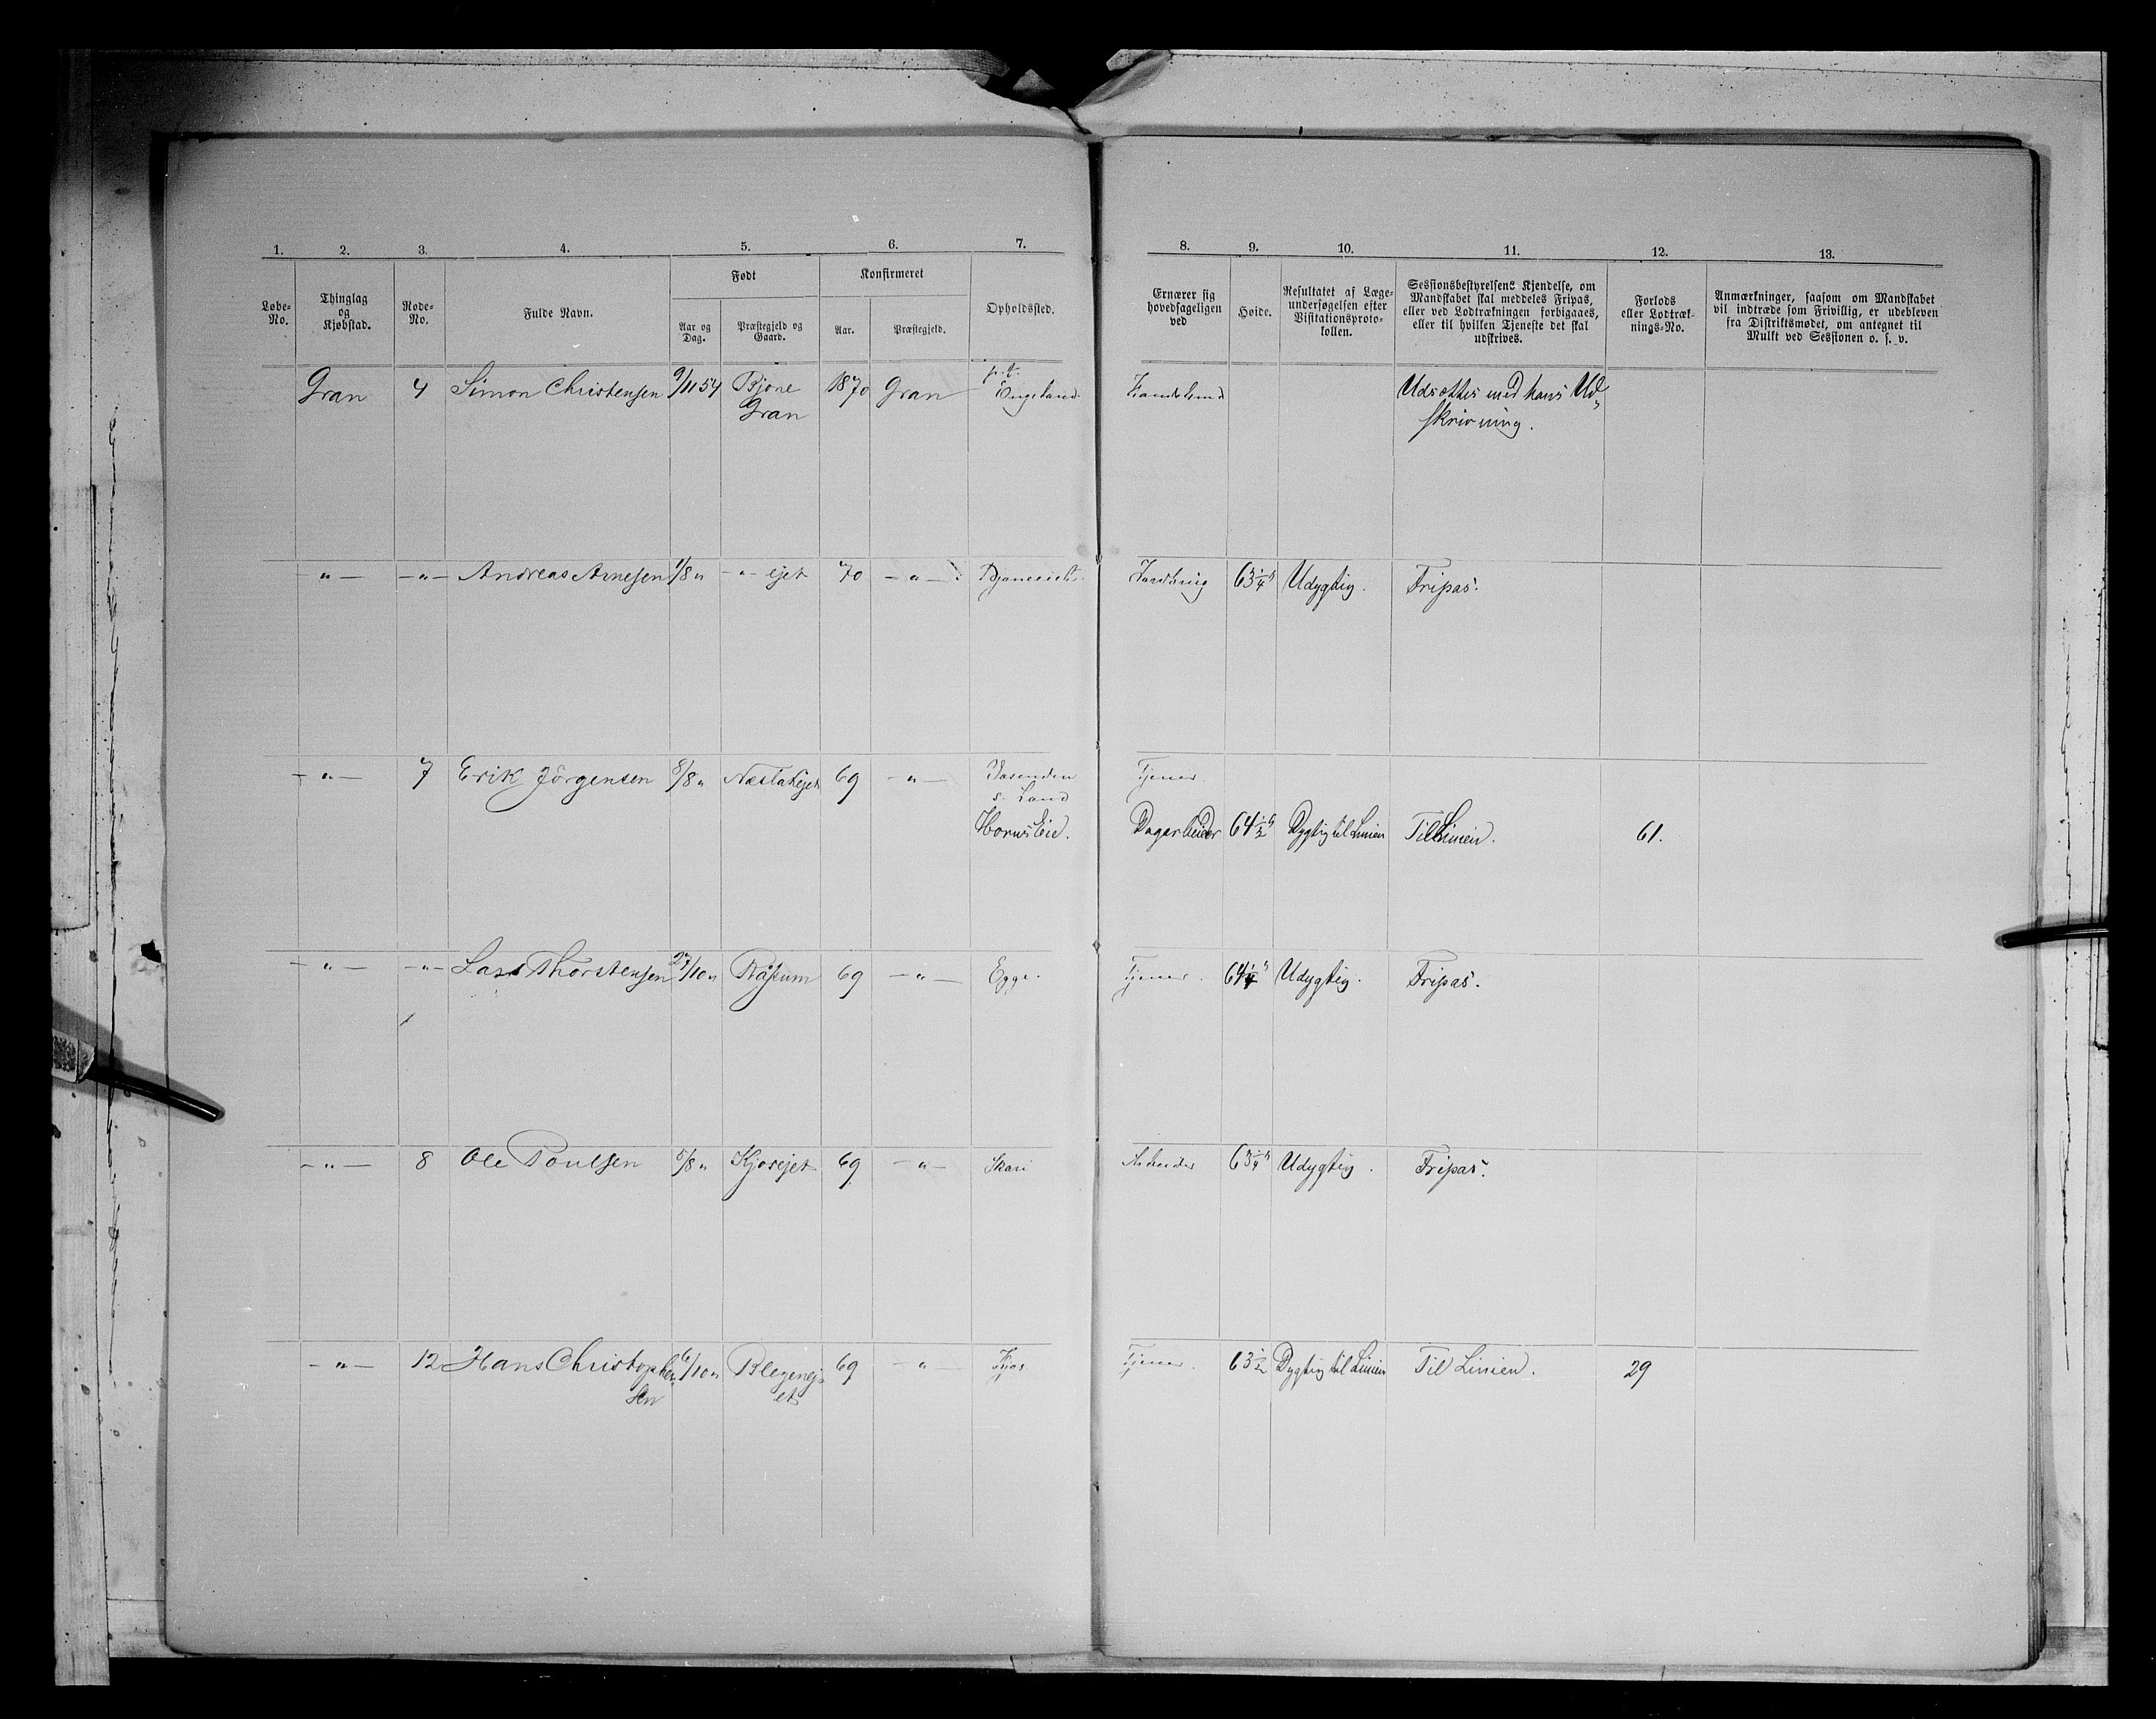 1. 2. 3. 4. 5. 6. 7. 8. 9. 10. 11. 12. 13.
Løbe-
No.
Thinglag
og
Kjøbstad.
Rode-
No.
Fulde Navn.
Født
Aar og
Dag.
Præstegjeld og
Gaard.
Konfirmeret
Aar.
Præstegjeld.
Opholdssted.
Ernærer sig
hovedsageligen
ved
Høide.
Resultatet af Læge-
undersøgelsen efter
Visitationsproto-
kollen.
Sessionsbestyrelsens Kjendelse, om
Mandskabet skal meddeles Fripas,
eller ved Lodtrækningen forbigaaes,
eller til hvilken Tjeneste det skal
udskrives.
Forlods
eller Lodtræk-
nings-No.
Anmærkninger, saasom om Mandskabet
vil indtræde som Frivillig, er udebleven
fra Distriktsmødet, om antegnet til
Mulkt ved Sessionen o. s. v.
p. t.
Gran 4 Simon Christensen 9/11 54 Bjone 1870 Gran Engeland Udsættes med hans Ud-
Gran skrivning.
-"- -"- Andreas Arnesen 1/8 " -"- ejet 70 -"- 63 1/4" Udygtig. Fripas.
-"- 7 Erik Jörgensen 8/8 " Næslaejet 69 -"- Vasenden Tjener
s. Land
Horns Eie. Dagarbeider 64 1/2" Dygtig til Linien Til Linien. 61.
-"- -"- Lars Thorstensen 27/10 " Råssum 69 -"- Egge. Tjener. 64 1/4" Udygtig. Fripas.
-"- 8 Ole Poulsen 5/8 " Kjosejet 69 -"- Skari Arbeider 63 1/4" Udygtig. Fripas.
-"- 12 Hans Christophen 6/10 " Blegenej- 69 -"- Kjos Tjener. 63 1/2 Dygtig til Linien Til Linien. 29
sen et